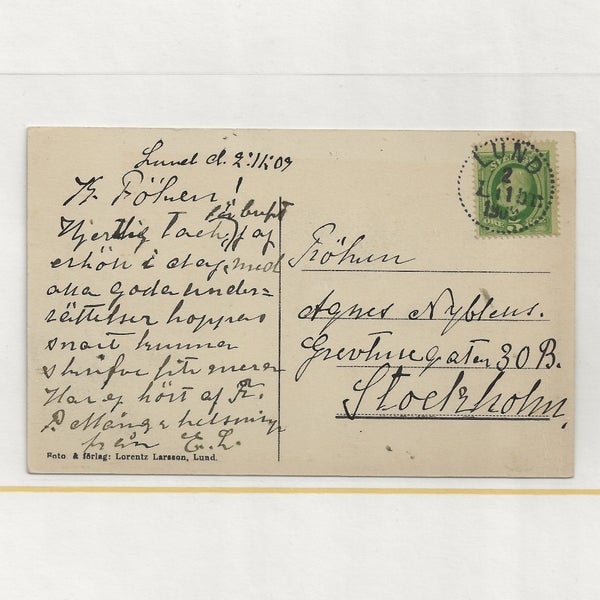 Lund d. 2:11:09
K. Fröken!
för breft
Hjertlig tack, jag
erhöll i dag, med
alla goda under=
rättelser hoppas
snart kunna
skrifva litet mera
Har ej hört af Fr.
P. Många helsningar
från E. L.
Foto & förlag: Lorentz Larsson, Lund.
LUND
2
11
1909
Fröken
Agnes Nyblens.
Grevturegatan 30 B.
Stockholm.